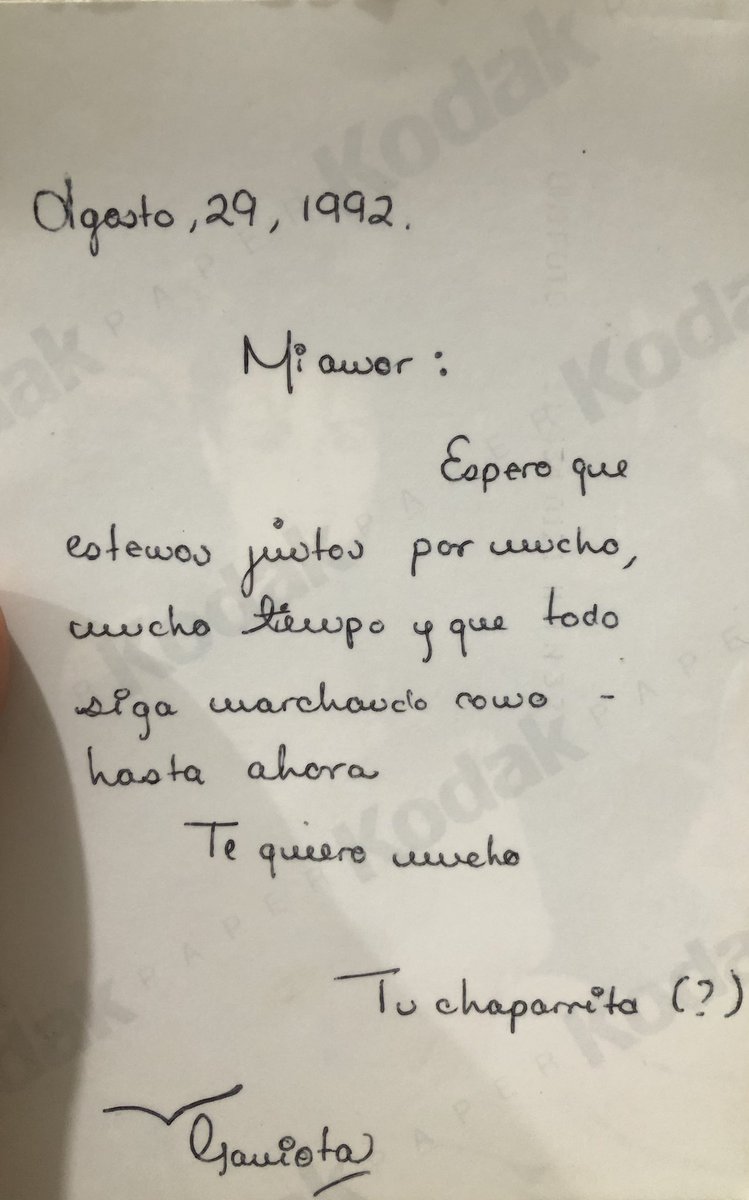 Agosto, 29, 1992.
Mi amor :
Espero que
estemos juntos por mucho,
mucho tiempo y que todo
siga marchando como -
hasta ahora
Te quiero mucho
Tu chaparrita (?)
Gaviota
Kodak
PAPER
Kodak
PAPER
Kodak
Kodak
PAPER
Kodak